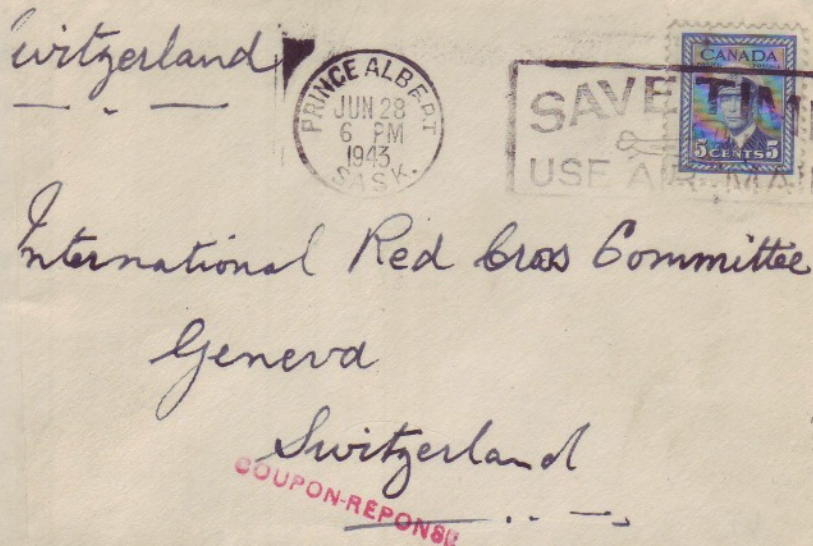 Switzerland
PRINCE ALBERT
JUN 28
6 PM
1943
SASK.
SAVE TIM
USE AIR MAI
CANADA
5 CENTS 5
International Red Cross Committee
Geneva
Switzerland
COUPON-REPONSE